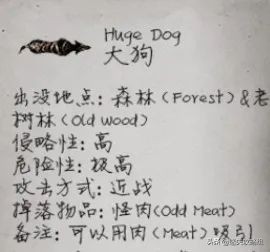 Huge Dog
大狗
出没地点: 森林 (Forest) & 老
树林 (Old Wood)
侵略性: 高
危险性: 极高
攻击方式: 近战
掉落物品: 怪肉 (Odd Meat)
备注: 可以用肉 (Meat) 吸引